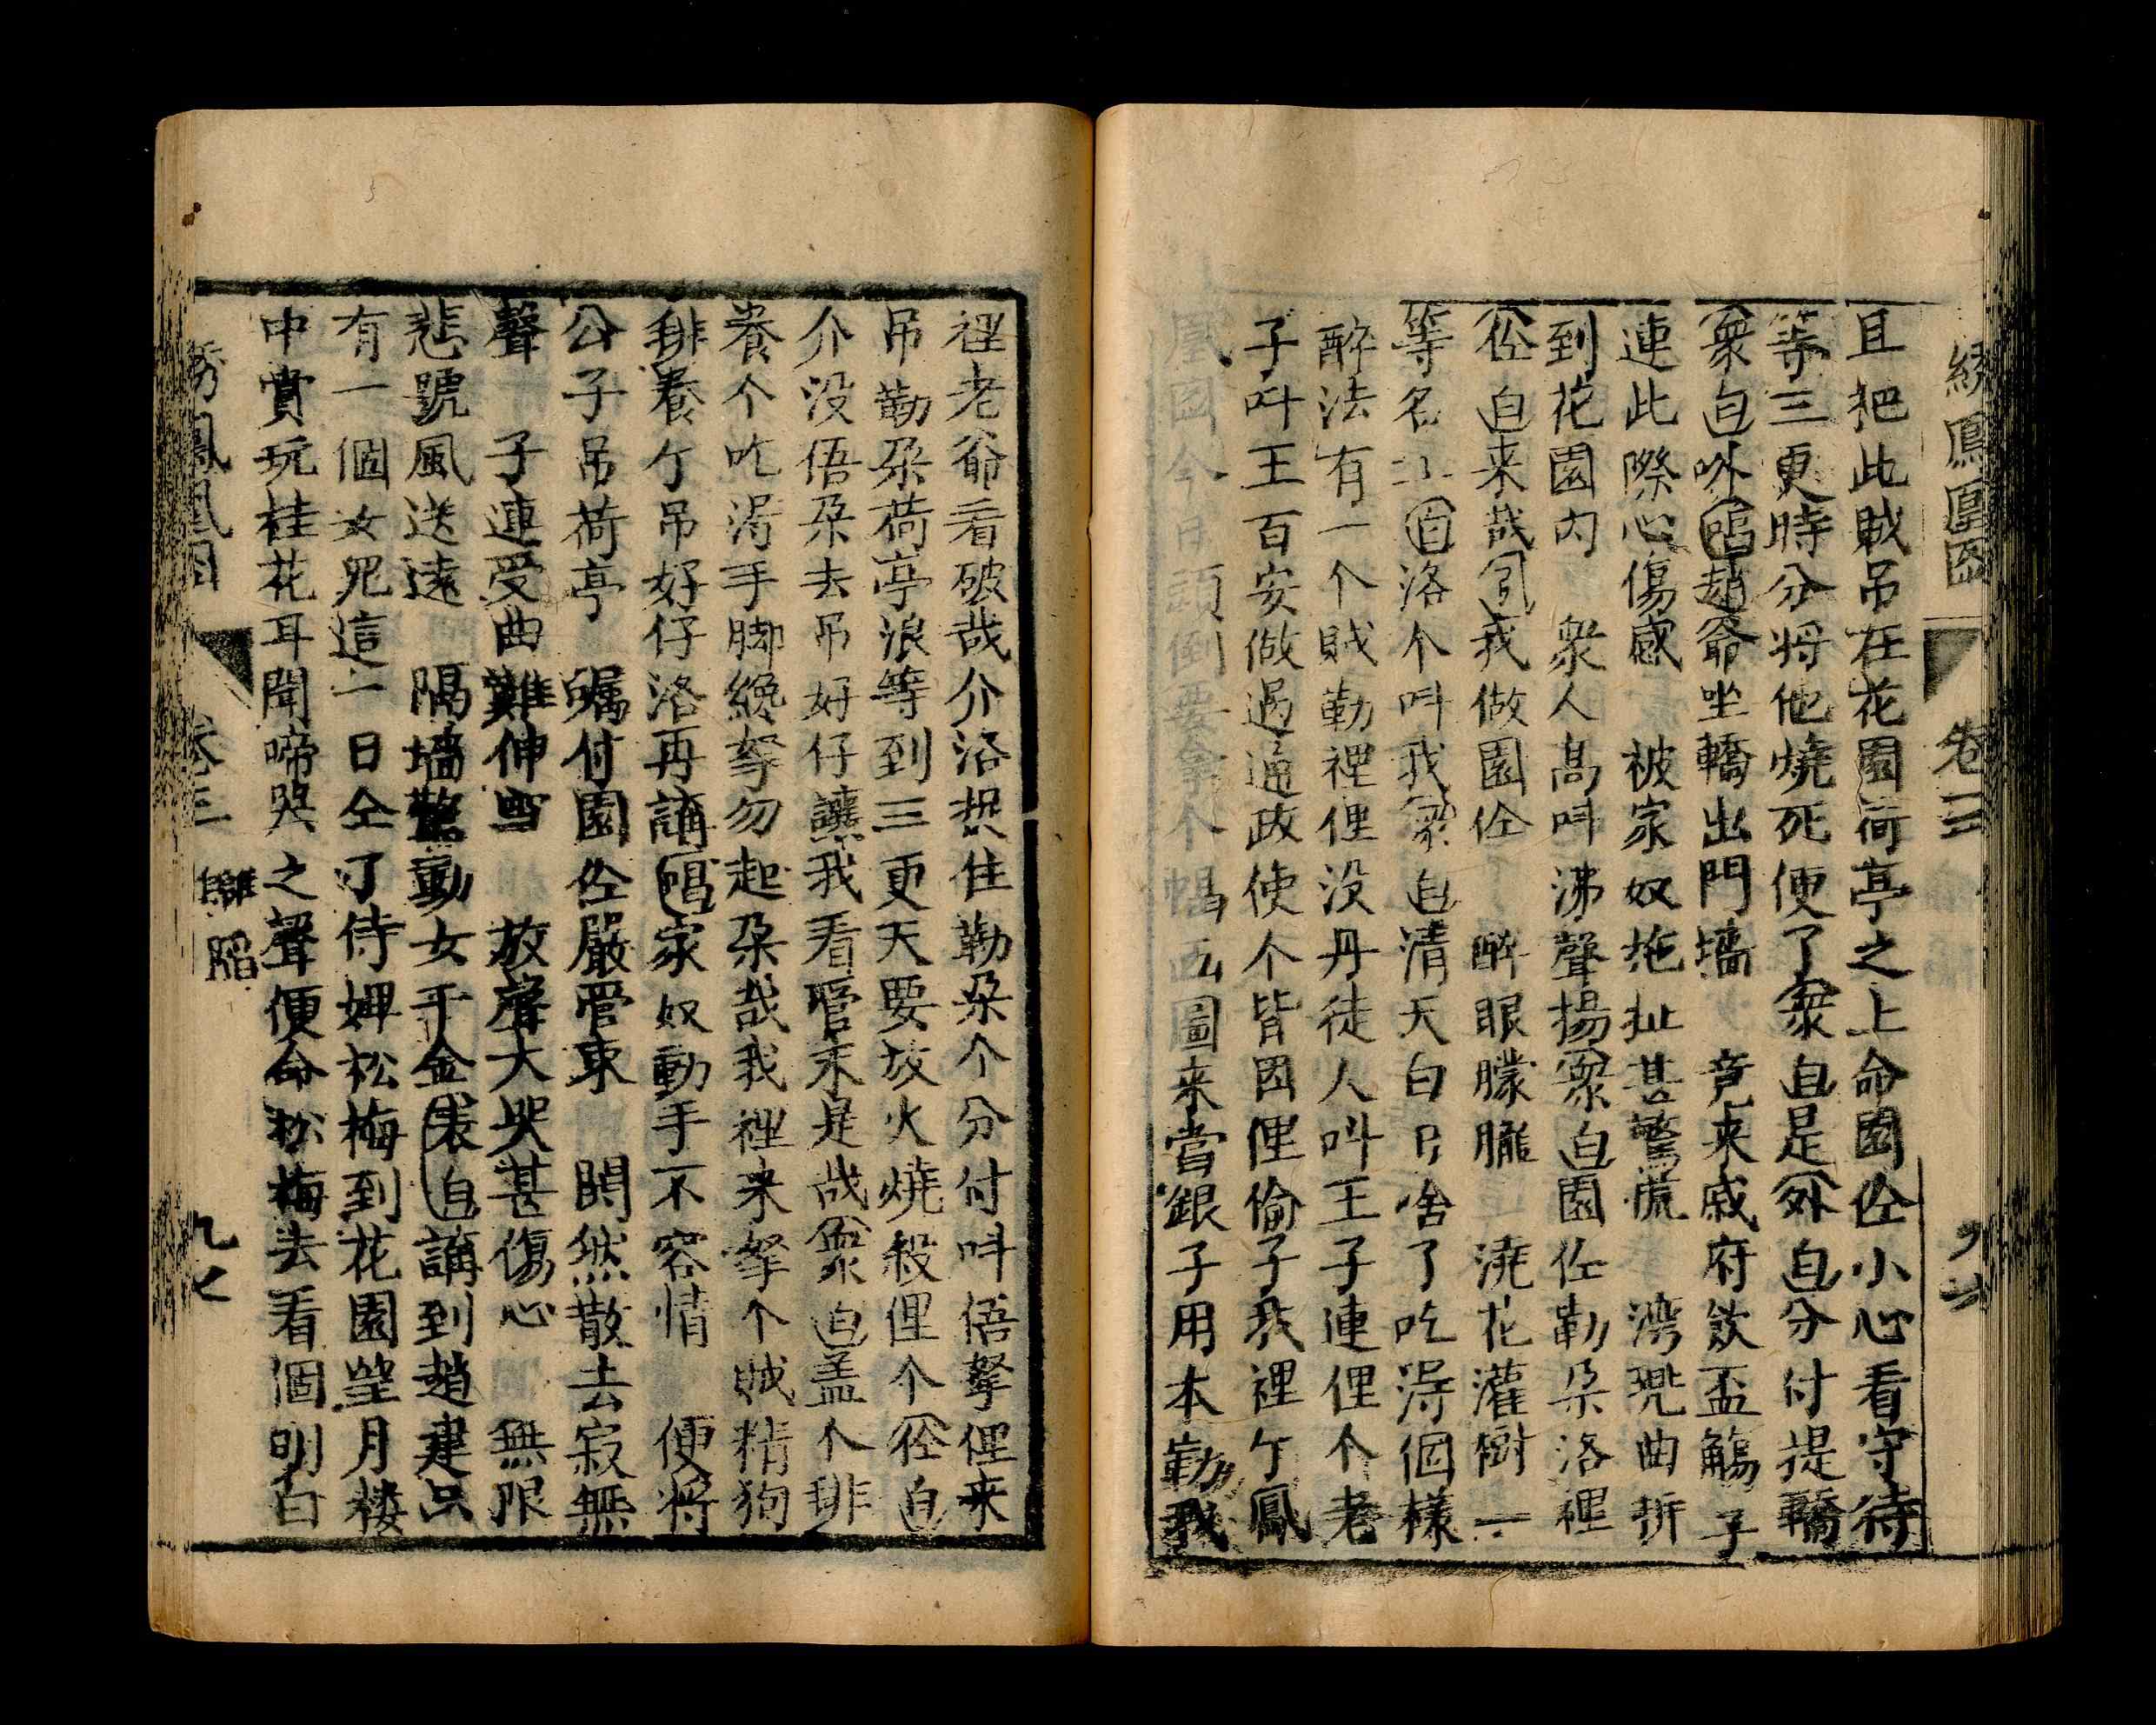 綉鳳凰圖 卷三
且把此賊吊在花園荷亭之上命園仝小心看守待
等三更時分将他燒死便了衆白是外白分付提轎
衆白吥唱趙爺坐轎出門墻 竟来戚府飲盃觴 子
連此際心傷感 被家奴拖扯甚驚慌 湾兜曲折
到花園内 衆人高叫沸聲揚衆白園仝勒朶洛裡
仝白来哉同我做園仝 醉眼朦朧 澆花灌樹一
等名 白洛个叫我衆白清天白日啥了吃得個樣
醉法有一个賊勒裡俚没丹徒人叫王子連俚个老
子叫王百安做過通政使个皆因俚偷子我裡个鳳
凰圖今日頭倒要拿个 圖来當銀子用本勤我
裡老爺看破哉介洛捉住勒朶个分付叫俉拏俚来
吊勒朶荷亭浪等到三更天要放火燒殺俚个仝白
介没俉朶去吊好仔讓我看管末是哉衆白盖个排
養个吃渴手脚纔拏勿起朶哉我裡来拏个賊精狗
排養个吊好仔洛再講唱家奴動手不容情 便将
公子吊荷亭 囑付園仝嚴管束 閧然散去寂無
聲 子連受曲難伸雪 放聲大哭甚傷心 無限
悲號風送遠 隔墻驚動女千金表白講到趙建只
有一個女児這一日仝了侍婢松梅到花園望月樓
中賞玩桂花耳聞啼哭之聲便命松梅去看個明白
綉鳳凰圖 卷三 陷 九七